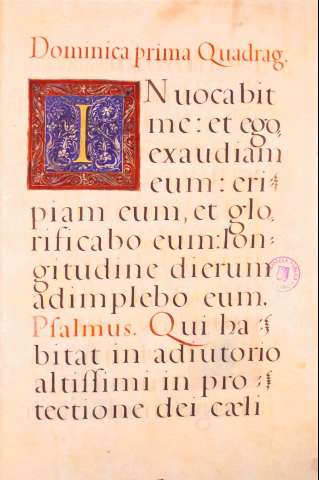 Dominica prima Quadrag.
INuocabit
me: et ego,
exaudiam
eum: eri-
piam eum, et glo,
rificabo eum: lon-
gitudine dierum
adimplebo eum.
Psalmus. Qui ha-
bitat in adiutorio
altiſſimi in pro-
tectione dei cæli